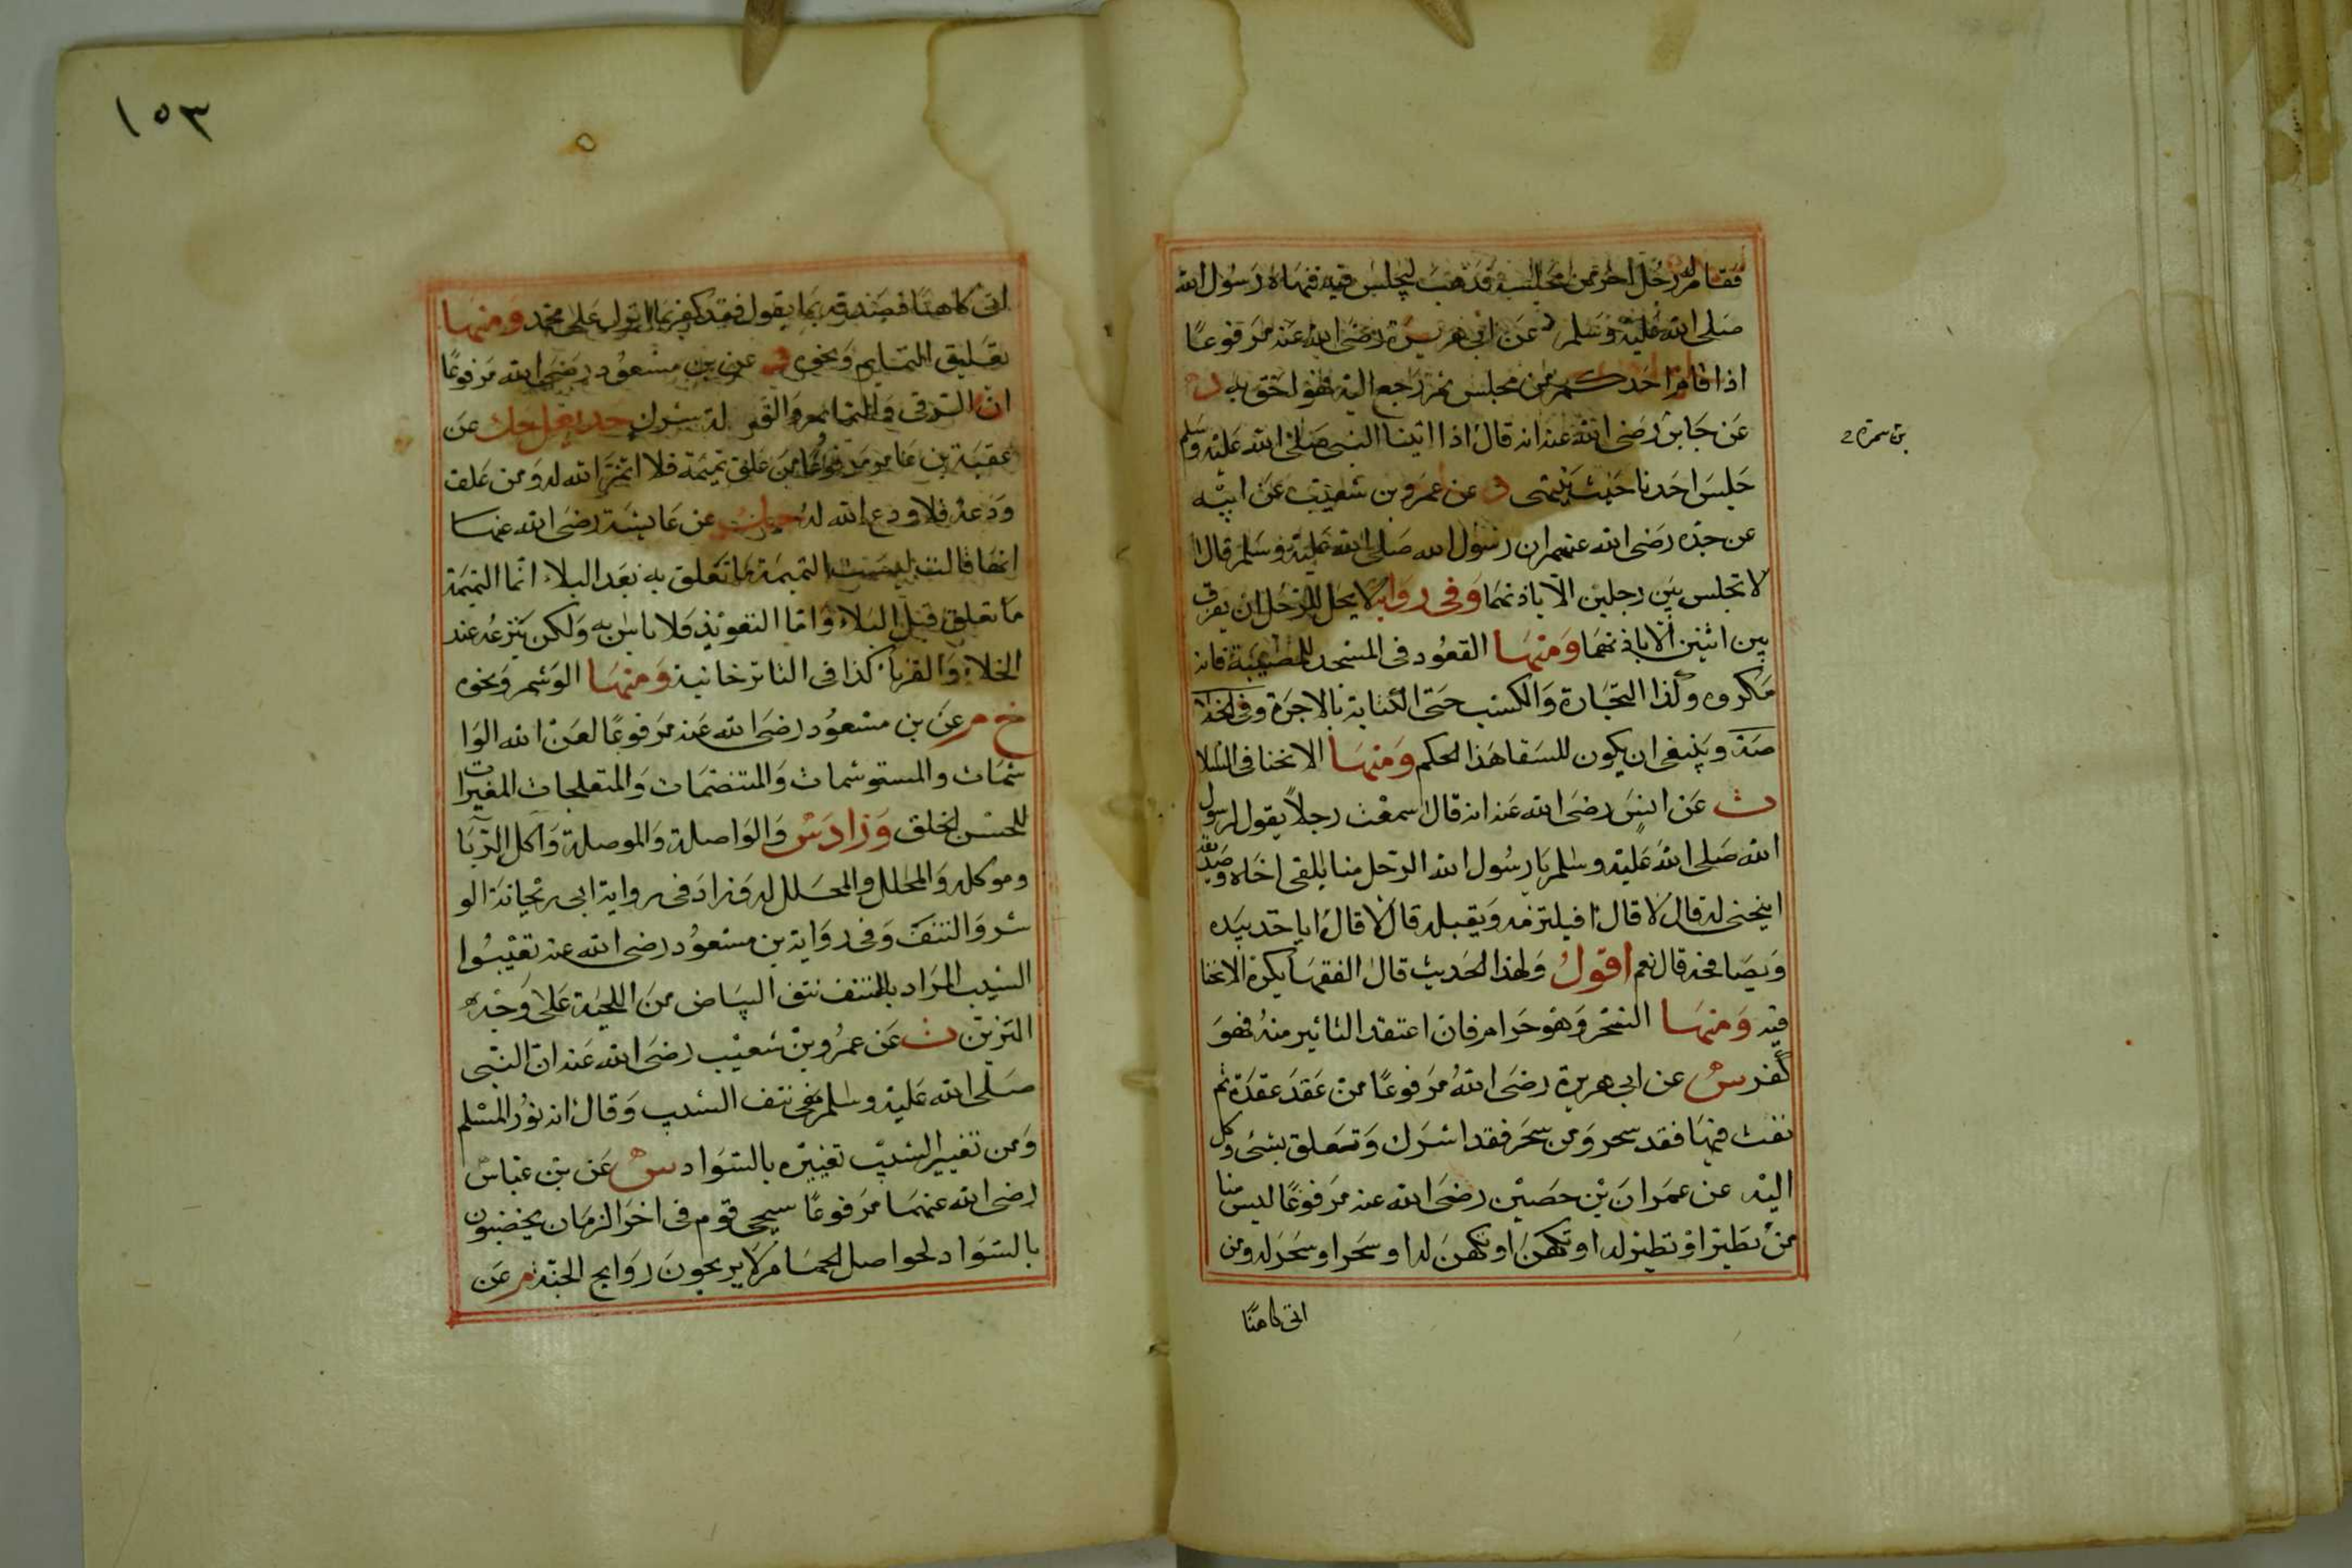 فقام له رجل اخر من مجلسه فذهب ليجلس فيه فنهاه رسول الله
صلى الله عليه وسلم م عن ابى هريرة رضى الله عنه مرفوعا
اذا قام احدكم من مجلس ثم رجع اليه فهو احق به د
عن جابر رضى الله عنه انه قال اذا اتينا النبى صلى الله عليه وسلم
بن سمرة
جلس احدنا حيث ينتهى د عن عمرو بن شعيب عن ابيه
عن جده رضى الله عنهم ان رسول الله صلى الله عليه وسلم قال
لا تجلس بين رجلين الا باذنهما وفى رواية لا يحل للرجل ان يفرق
بين اثنين الا باذنهما ومنها القعود فى المسجد للمصيبة فانه
مكروه وكذا التجارة والكسب حتى الكتابة بالاجرة وفى الخلا
صة وينبغى ان يكون للسقا هذا الحكم ومنها الانحنا فى السلا
ت عن انس رضى الله عنه انه قال سمعت رجلا يقول لرسول
الله صلى الله عليه وسلم يا رسول الله الرجل منا يلقى اخاه وصديقه
اينحنى له قال لا قال افيلتزمه ويقبله قال لا قال اياخذ بيده
ويصافحه قال نعم اقول ولهذا الحديث قال الفقها يكره الانحنا
فيه ومنها السحر وهو حرام فان اعتقد التاثير منه فهو
كفر س عن ابى هريرة رضى الله مرفوعا من عقد عقدة ثم
نفث فيها فقد سحر ومن سحر فقد اشرك وتعلق بشئ وكل
اليه عن عمران بن حصين رضى الله عنه مرفوعا ليس منا
من تطير او تطير له او تكهن او تكهن له او سحر او سحر له ومن
اتى كاهنا
١٥٣
اتى كاهنا فصدقه بما يقول فقد كفر بما انزل على محمد ومنها
تعليق التمايم ونحوه د عن بن مسعود رضى الله مرفوعا
ان الرقى والتمايم والتولة شرك حد يعلى حك عن
عقبة بن عامر مرفوعا من علق تميمة فلا اتم الله له ومن علق
ودعة فلا ودع الله له عن عايشة رضى الله عنها
انها قالت ليست التميمة ما تعلق به بعد البلاء انما التميمة
ما تعلق قبل البلاء واما التعويذ فلا باس به ولكن ينزعه عند
الخلاء والقربان كذا فى التاترخانية ومنها الوشم ونحوه
خ م عن بن مسعود رضى الله عنه مرفوعا لعن الله الوا
شمات والمستوشمات والمتنمصات والمتفلجات المغيرات
للحسن لخلق وزاد س والواصلة والموصلة واكل الربا
وموكله والمحلل والمحلل له وزاد فى رواية ابى ريحانة الو
شر والنتف وفى رواية بن مسعود رضى الله عنه تغيبوا
الشيب المراد بالنتف نتف البياض من اللحية على وجه
التزين ت عن عمرو بن شعيب رضى الله عنه ان النبى
صلى الله عليه وسلم نهى نتف الشيب وقال انه نور المسلم
ومن تغيير الشيب تغييره بالسواد س عن بن عباس
رضى الله عنهما مرفوعا سيجى قوم فى اخر الزمان يخضبون
بالسواد لحواصل الحمام لا يريحون روايح الجنة م عن